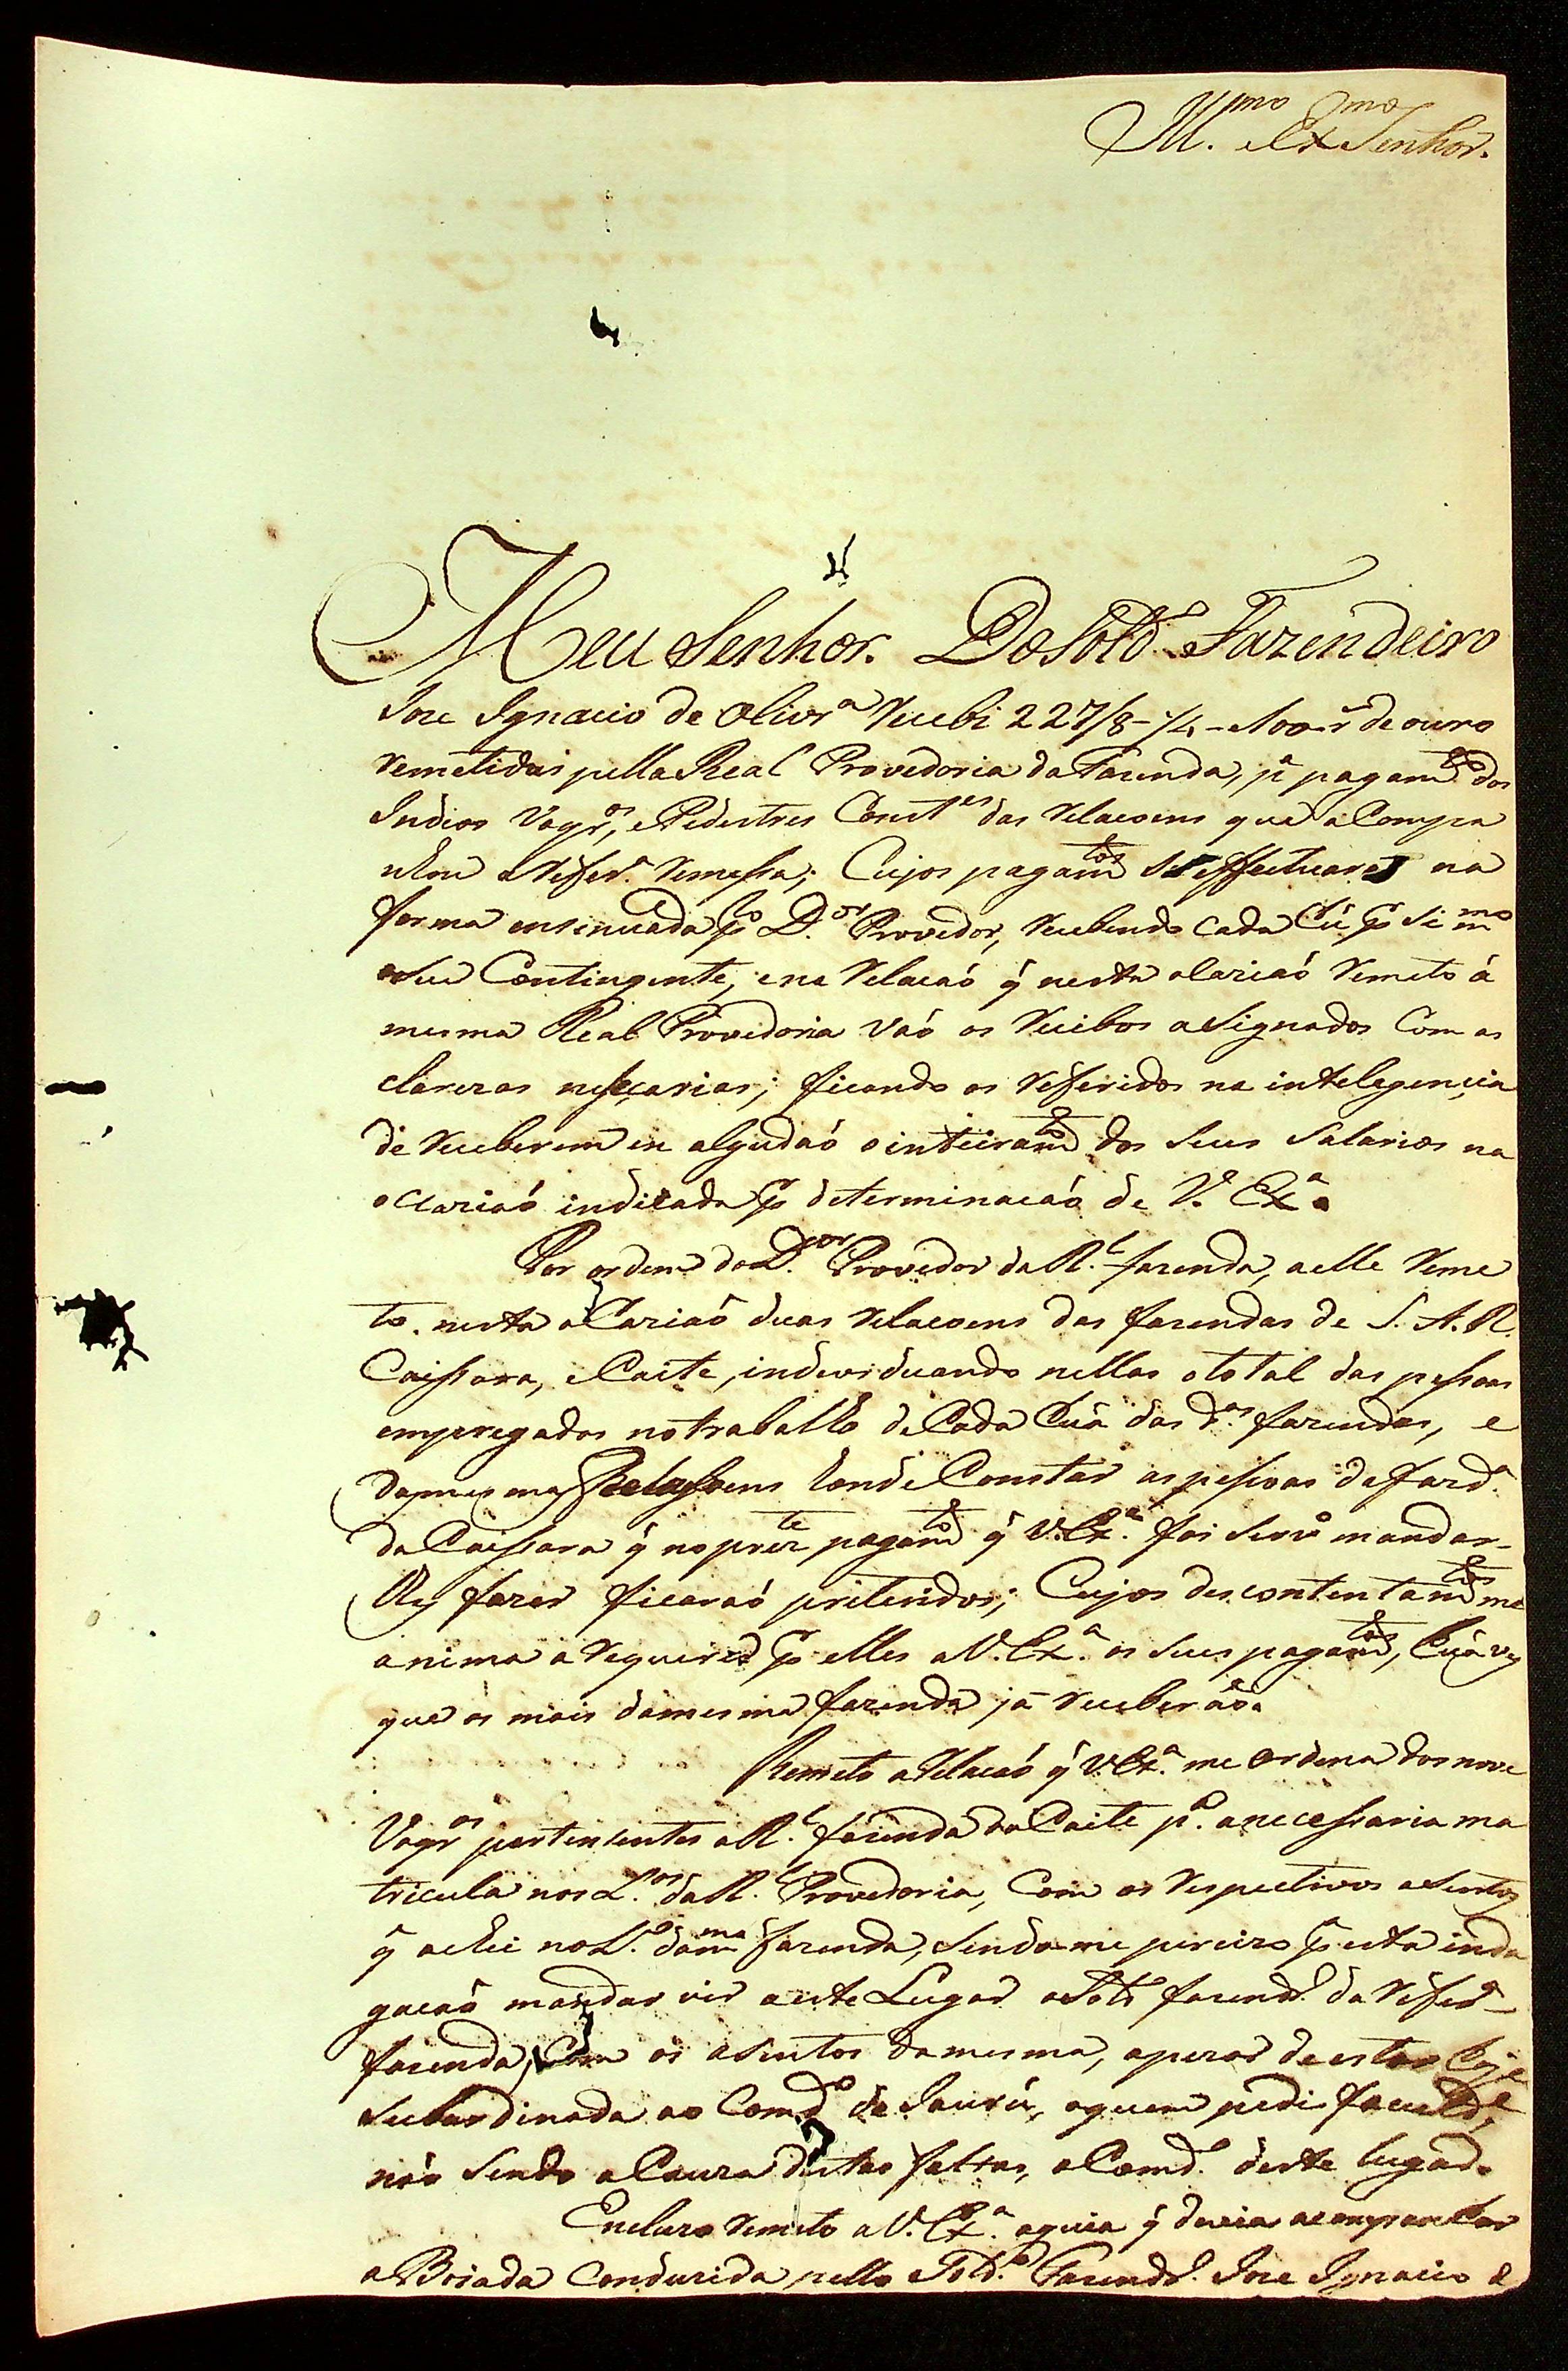 Ill.mo e Ex.mo Senhor.
Meu Senhor. Do Sold.o Fazendeiro
Joze Ignacio de Olivr.a recebi 227/8-/4- de ouro
remetidas pella Real Provedoria da Fazenda, p.a pagam.to dos
Indios Vaqr.os, e Pedestres Const.es das relacoens que a Compa
nhou a refer.a remessa; Cujos pagam.tos se effectuaraõ na
forma ensinuada p.lo D.or Provedor, recebendo cada hũ p.r Si m.mo
o seu Contingente, e na relacaõ q̃ nesta ocaziaõ remeto á
mesma Real Provedoria vaõ os recibos asignados Com as
clarezas nessçarias; ficando os refferidos na intelegençia
de receberem em algudaõ o inteiram.to dos Seus Salarios na
ocaziaõ indicada p.r determinacaõ de V. Ex.a
Por ordem do D.tor Provedor da R.l fazenda, a elle reme
to nesta oCaziaõ duas relacoens das fazendas de S. A. R.
Caissara, e Caite, individuando nellas o total das pessoas
empregadas no traballo de Cada huã das d.as fazendas, e
das mesmas Relassoens hande Constar as pessoas da fazd.a
da Caissara q̃ no prez.te pagam.to q̃ V. Ex.a foi Servo mandar-
lhes fazer ficaraõ preteridos; Cujos descontentam.tos me
anima a requerer p.r elles a V. Ex.a os seus pagam.tos, huã vez
que os mais da mesma fazenda ja receberaõ.
Remeto a relacaõ q̃ V. Ex.a me ordena dos nove
Vaqr.os pertensentes a R.l fazenda do Caite p.a a necessaria ma
tricula nos L.os da R.l Provedoria, Com os respectivos asentos
q̃ achei no L.o da m.ma fazenda, sendo-me percizo p.a esta inda
gacaõ mandar vir a este Lugar o Sold.o fazendr.o da refer.a
fazenda, Com os asentos da mesma, apezar de estar hoje
subordinada ao Comd.e de Jaurú, a quem pedi faculd.e,
não Sendo a Cauza destas faltas, o Comd.e deste lugar.
Encluza remeto a V. Ex.a a guia q̃ devia acompanhar
a Boiada Conduzida pello Sold.o Fazendr.o Joze Ignacio d